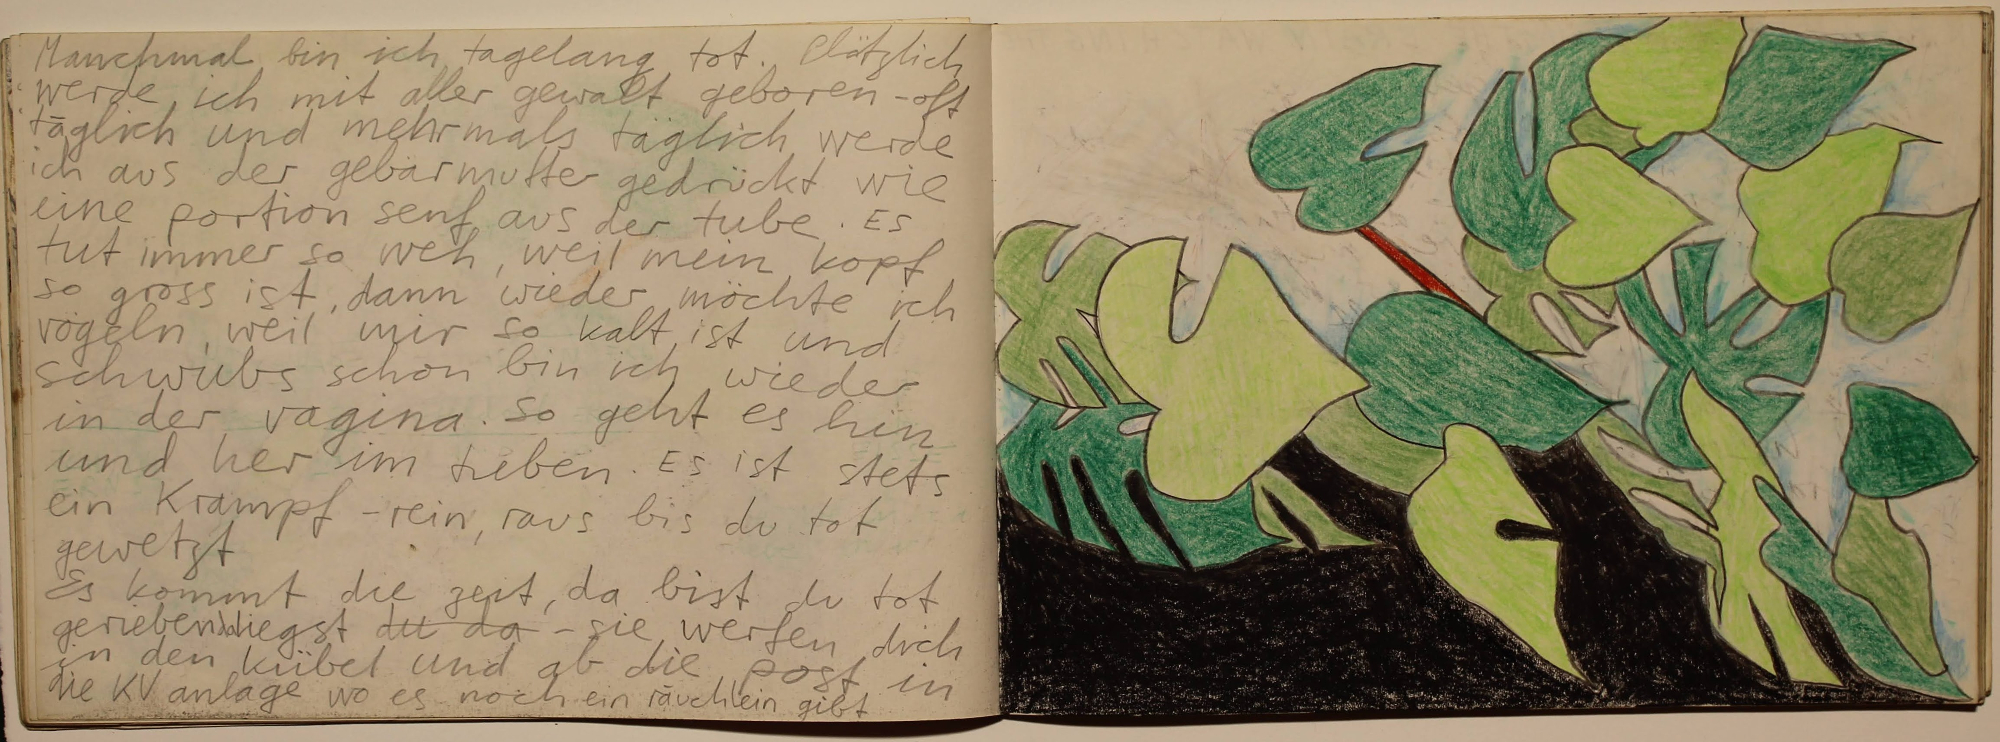 Manchmal bin ich tagelang tot. Plötzlich
werde ich mit aller gewalt geboren - oft
täglich und mehrmals täglich werde
ich aus der gebärmutter gedrückt wie
eine portion senf aus der tube. Es
tut immer so weh, weil mein kopf
so gross ist, dann wieder möchte ich
vögeln, weil mir so kalt ist und
schwubs schon bin ich wieder
in der vagina. So geht es hin
und her im Leben. Es ist stets
ein Krampf - rein, raus bis du tot
gewetzt
Es kommt die zeit, da bist du tot
gerieben liegst du da - sie werfen dich
in den kübel und ab die post in
die KV anlage wo es noch ein räuchlein gibt